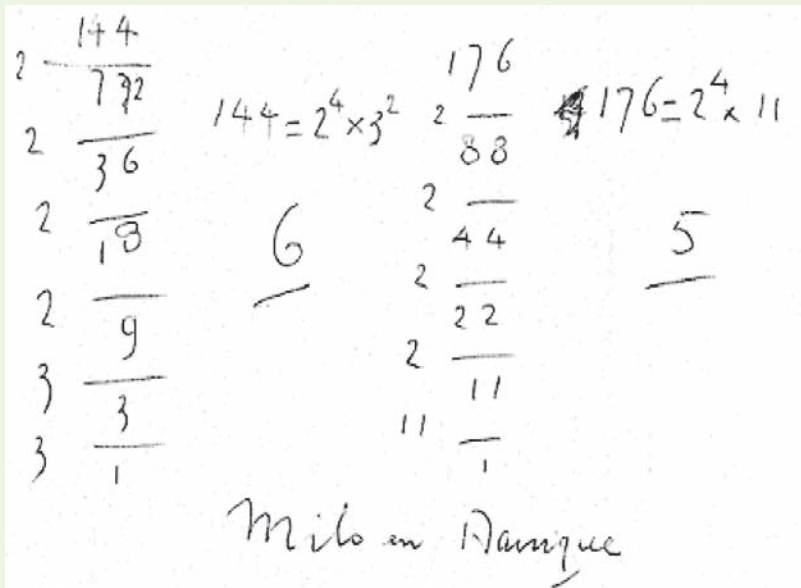 144
2
72
2
36
2
18
2
9
3
3
3
1
144 = 2⁴ × 3²
6
176
2
88
2
44
2
22
2
11
11
1
176 = 2⁴ × 11
5
Milo en